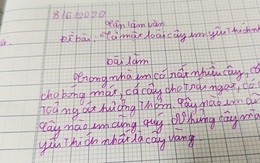 8/6/2020
Tập làm văn
Đề bài: Tả một loài cây em yêu thích nh
Bài làm
Trong nhà em có rất nhiều cây,
cho bóng mát, có cây cho trái ngọt, có
toả ngát hương thơm. Cây nào em
Cây nào em cũng quý. Nhưng cây mà
yêu thích nhất là cây vàng